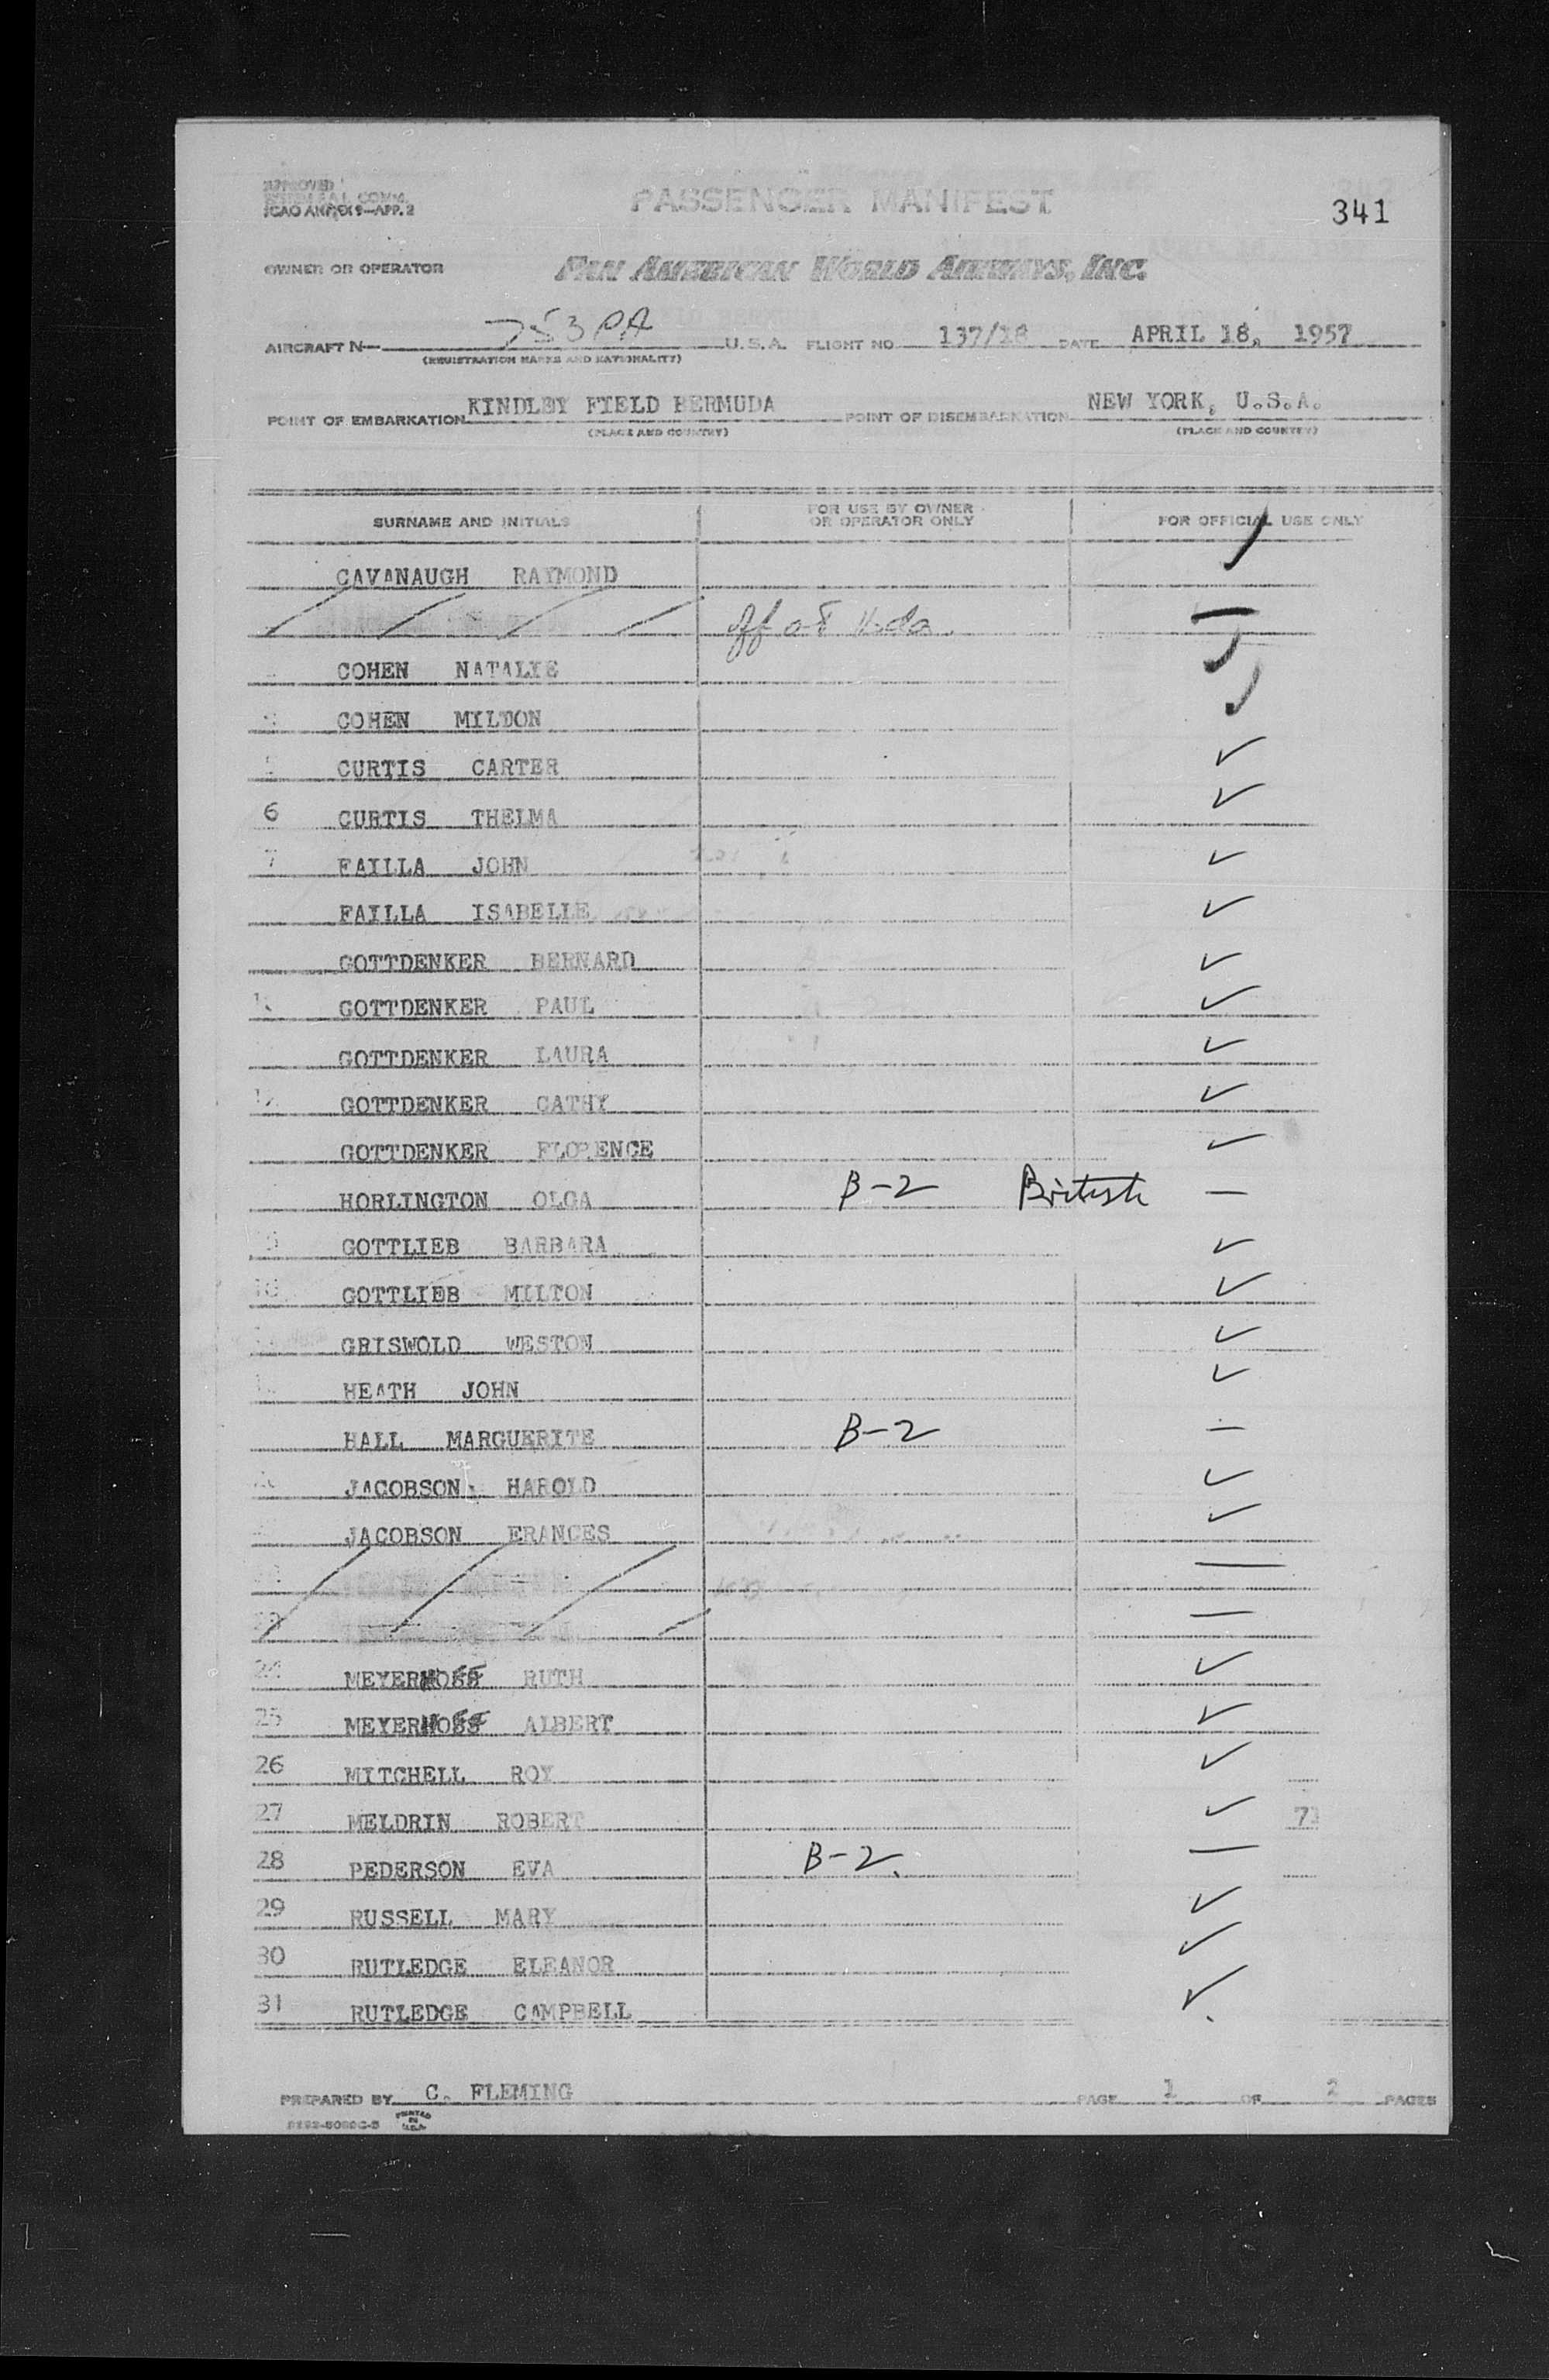 APPROVED
ICAO ANNEX 9—APP. 2
PASSENGER MANIFEST
341
OWNER OR OPERATOR PAN AMERICAN WORLD AIRWAYS, INC.
AIRCRAFT N— 753PA U.S.A. FLIGHT NO 137/18 DATE APRIL 18, 1957
(REGISTRATION MARKS AND NATIONALITY)
POINT OF EMBARKATION KINDLEY FIELD BERMUDA POINT OF DISEMBARKATION NEW YORK, U.S.A.
(PLACE AND COUNTRY) (PLACE AND COUNTRY)
SURNAME AND INITIALS FOR USE BY OWNER OR OPERATOR ONLY FOR OFFICIAL USE ONLY
CAVANAUGH RAYMOND
off at
COHEN NATALIE ✓
COHEN MILTON ✓
CURTIS CARTER ✓
6 CURTIS THELMA ✓
7 FAILLA JOHN ✓
FAILLA ISABELLE ✓
GOTTDENKER BERNARD ✓
GOTTDENKER PAUL ✓
GOTTDENKER LAURA ✓
12 GOTTDENKER CATHY ✓
GOTTDENKER FLORENCE ✓
HORLINGTON OLGA B-2 British —
GOTTLIEB BARBARA ✓
16 GOTTLIEB MILTON ✓
GRISWOLD WESTON ✓
HEATH JOHN ✓
HALL MARGUERITE B-2 —
JACOBSON HAROLD ✓
JACOBSON FRANCES ✓
—
23 —
24 MEYERHOFF RUTH ✓
25 MEYERHOFF ALBERT ✓
26 MITCHELL ROY ✓
27 MELDRIN ROBERT ✓
28 PEDERSON EVA B-2. —
29 RUSSELL MARY ✓
30 RUTLEDGE ELEANOR ✓
31 RUTLEDGE CAMPBELL ✓
PREPARED BY C. FLEMING PAGE 1 OF 2 PAGES
PRINTED IN U.S.A.